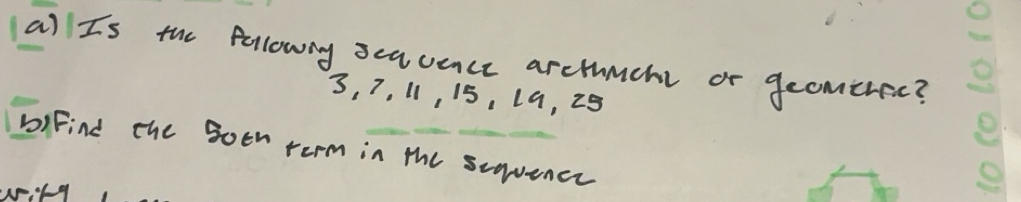 a) Is the following sequence arethmetic or geometric?
3, 7, 11, 15, 19, 25
b) Find the 50th term in the sequence
10 10 10 10